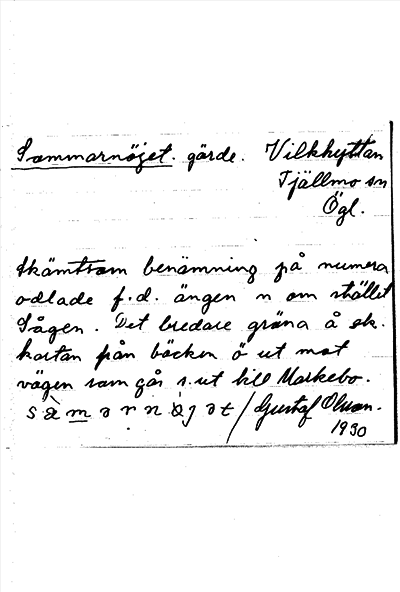 Sommarnöjet. gärde. Vilkhyttan
Tjällmo sn
Ögl.
Skämtsam benämning på numera
odlade f.d. ängen n om stället
Sågen. Det bredare gröna å ek.
kartan från bäcken ö ut mot
vägen som går s. ut till Markebo.
s à m ə r n ö̀ j ə t / Gustaf Olson.
1930